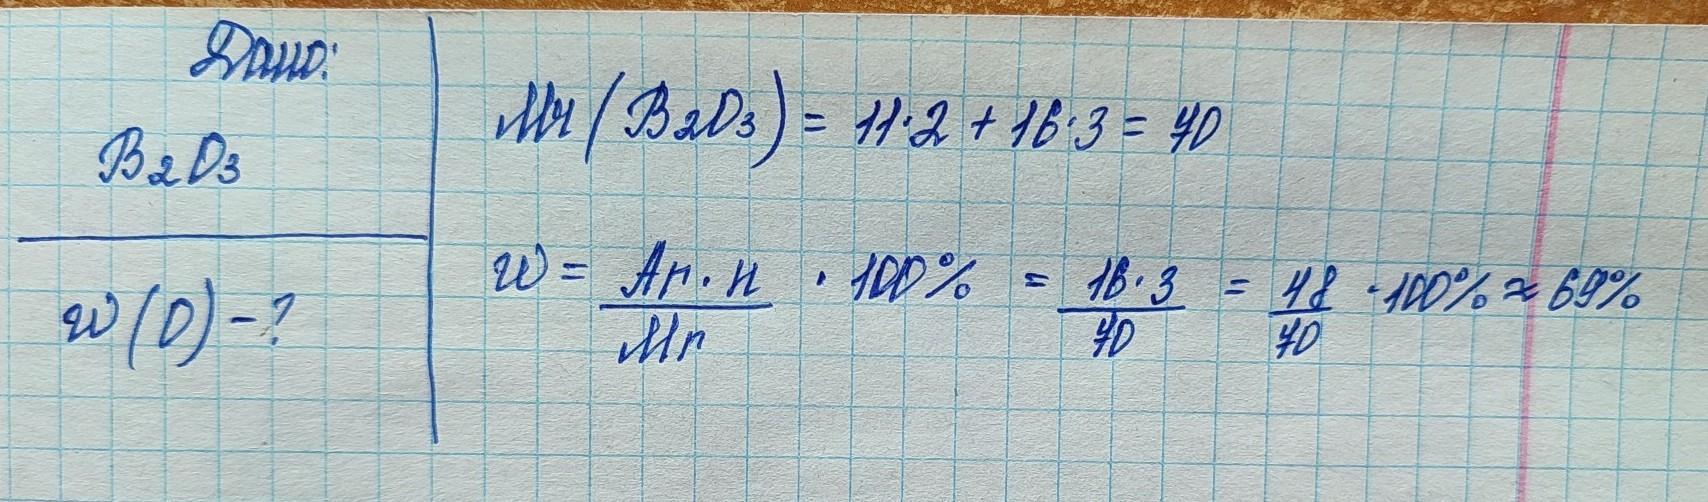 Дано:
B₂O₃
w(O) - ?
Mr(B₂O₃) = 11·2 + 16·3 = 70
w = Ar·n / Mr · 100% = 16·3 / 70 = 48 / 70 · 100% ≈ 69%